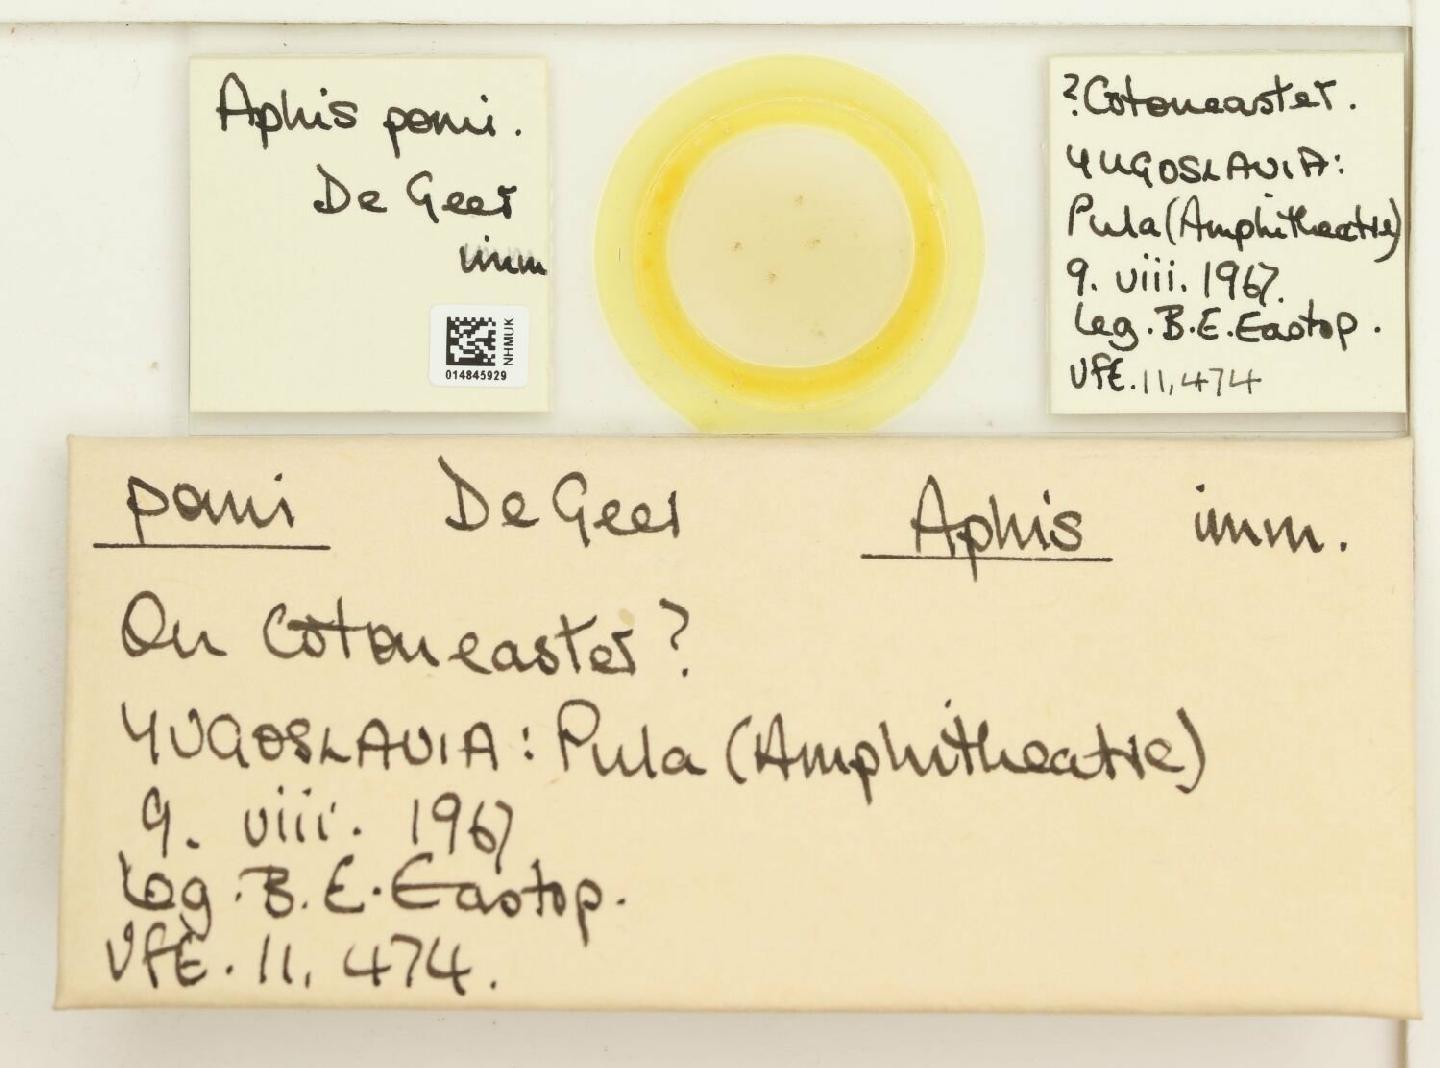 Aphis pomi.
De Geer
imm
NHMUK
014845929
?Cotoneaster.
YUGOSLAVIA:
Pula (Amphitheatre)
9. viii. 1967.
Leg. B.E. Eastop.
VFE. 11,474
pomi De Geer Aphis imm.
On Cotoneaster?
YUGOSLAVIA: Pula (Amphitheatre)
9. viii. 1967
Leg. B. E. Eastop.
VFE. 11, 474.